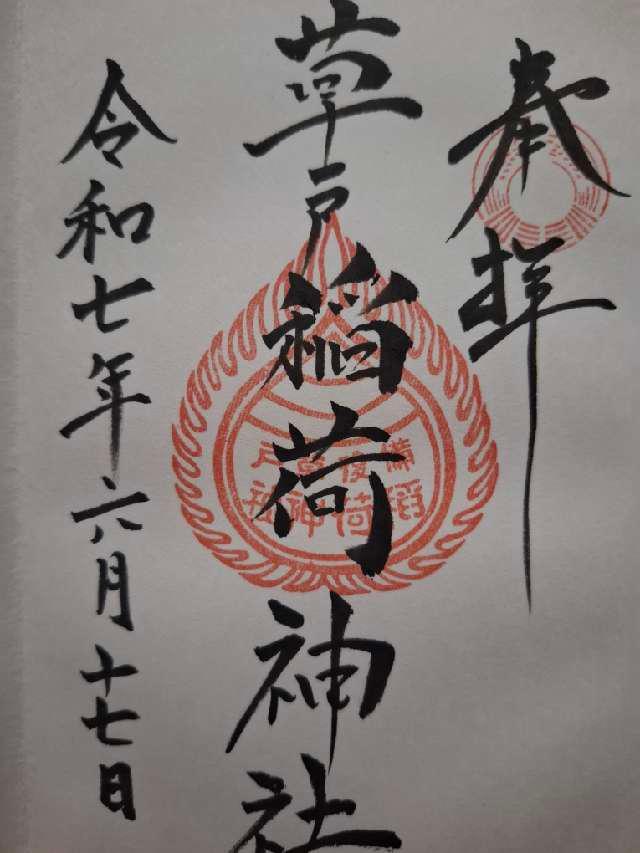 奉拝
草戸稲荷神社
備後草戸
稲荷神社
令和七年六月十七日